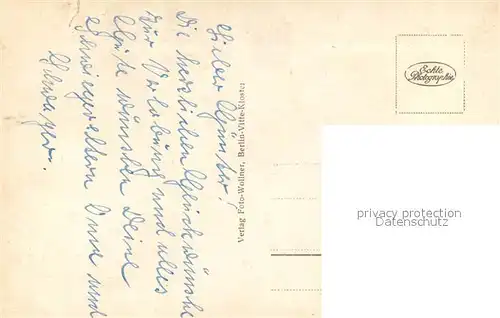 Lieber Günter!
Die herzlichen Glückwünsche
zur Verlobung und alles
Gute wünschen Deine
Schwiegereltern Oma und
Schwager.
Verlag Foto-Wellner, Berlin-Vitte-Kloster
Echte
Photographie
privacy protection
Datenschutz